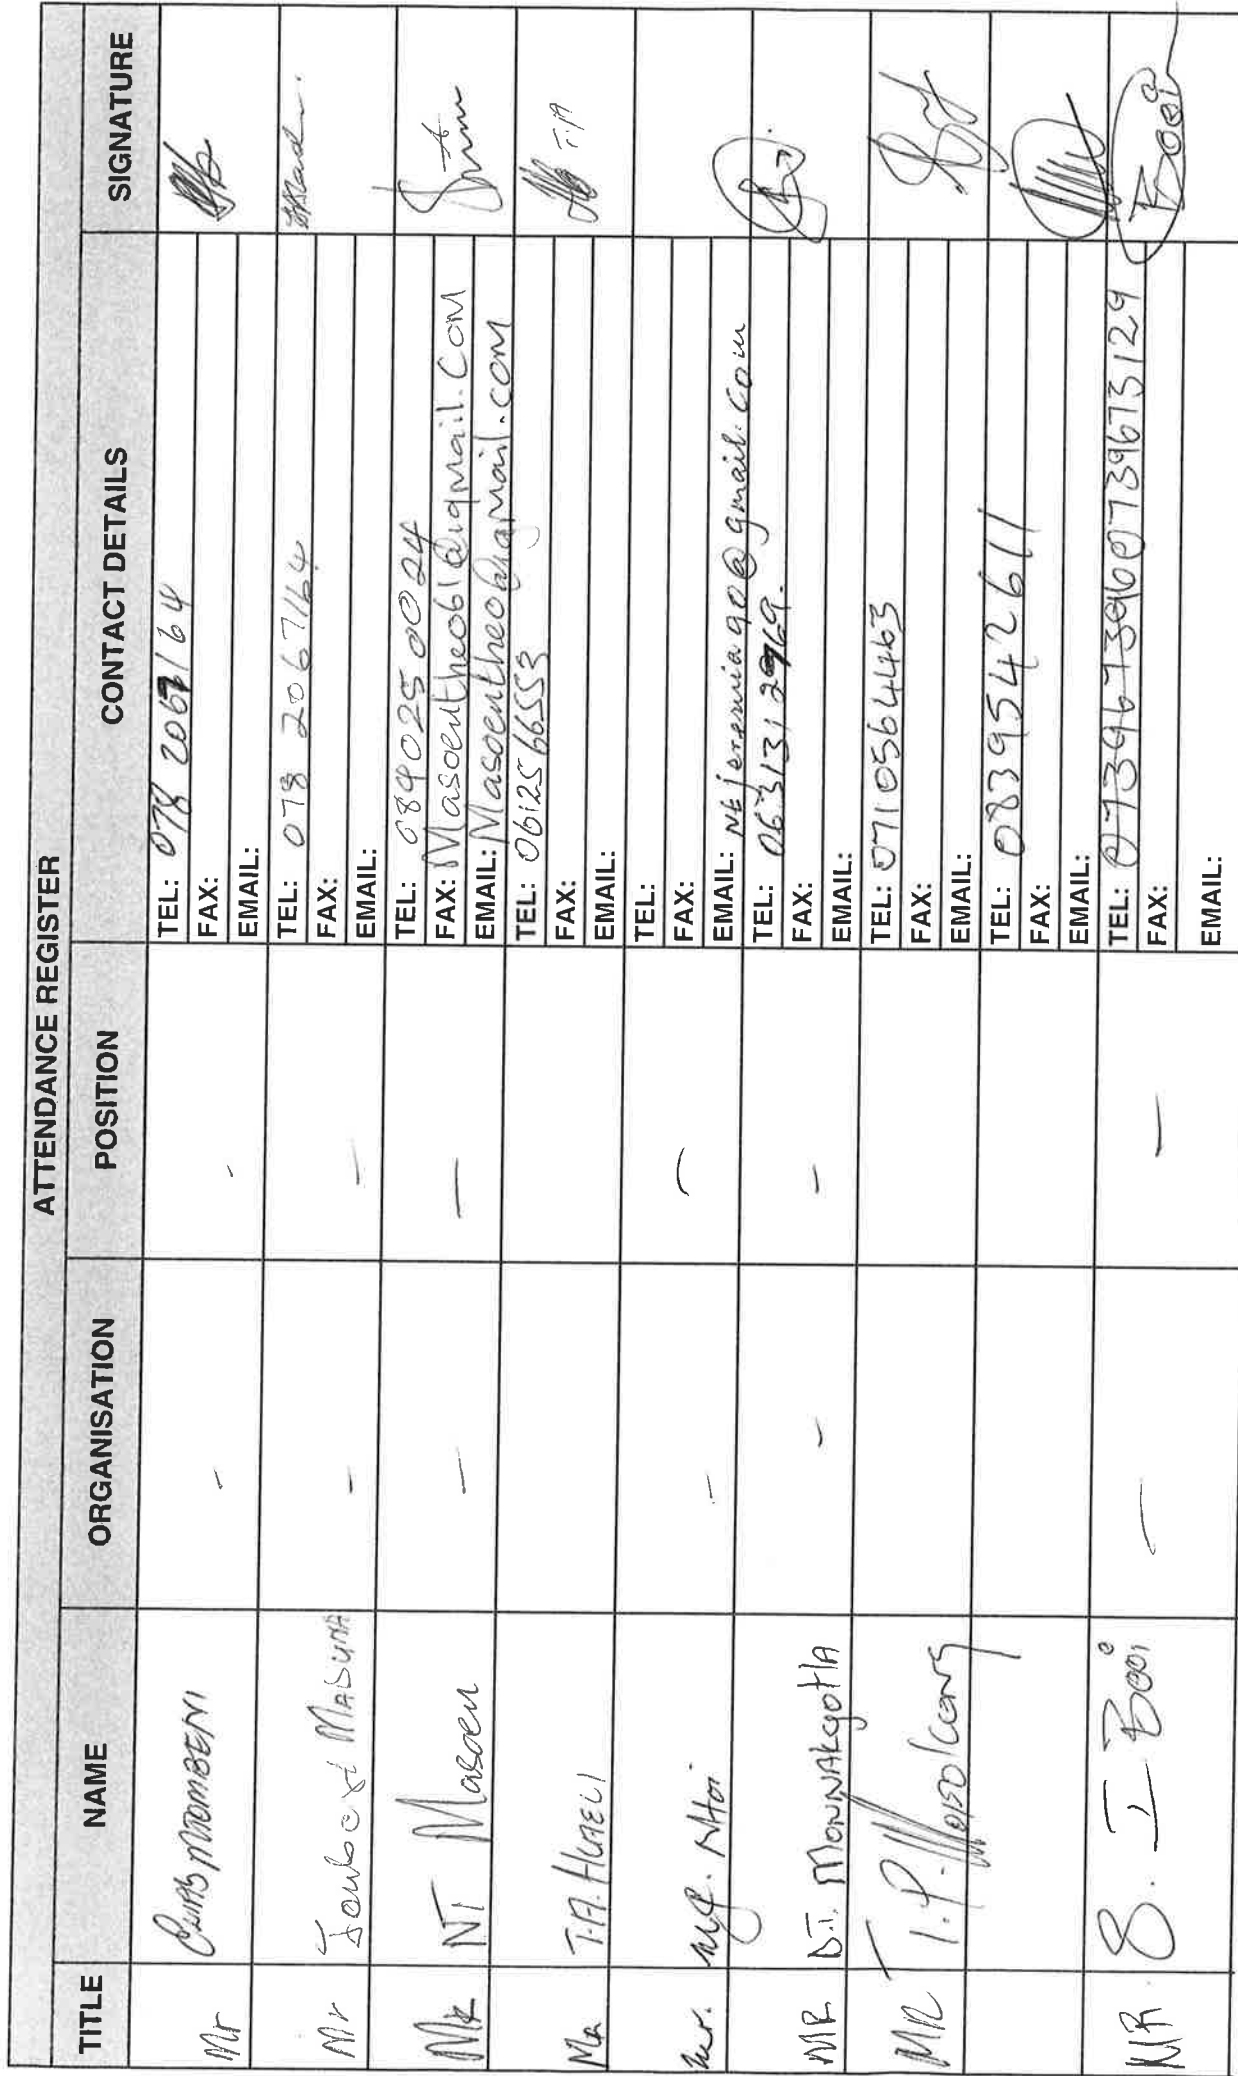 ATTENDANCE REGISTER
TITLE NAME ORGANISATION POSITION CONTACT DETAILS SIGNATURE
Mr - - TEL: 078 2067164
FAX:
EMAIL:
Mr - - TEL: 078 2067164
FAX:
EMAIL:
MR NT Masoeu - - TEL: 0840250024
FAX: Masoeutheo61@gmail.com
EMAIL: Masoeutheo@gmail.com
Mr T.A. HLAELI TEL: 0612566553 T.A
FAX:
EMAIL:
Mr. - - TEL:
FAX:
EMAIL: Ntjeremia90@gmail.com
MR D.I. MONNAKgotlA - - TEL: 0631312969.
FAX:
EMAIL:
MR T.P. TEL: 0710564463
FAX:
EMAIL:
TEL: 0839542611
FAX:
EMAIL:
MR 8. I Booi - - TEL: 0739673129 Booi
FAX:
EMAIL: